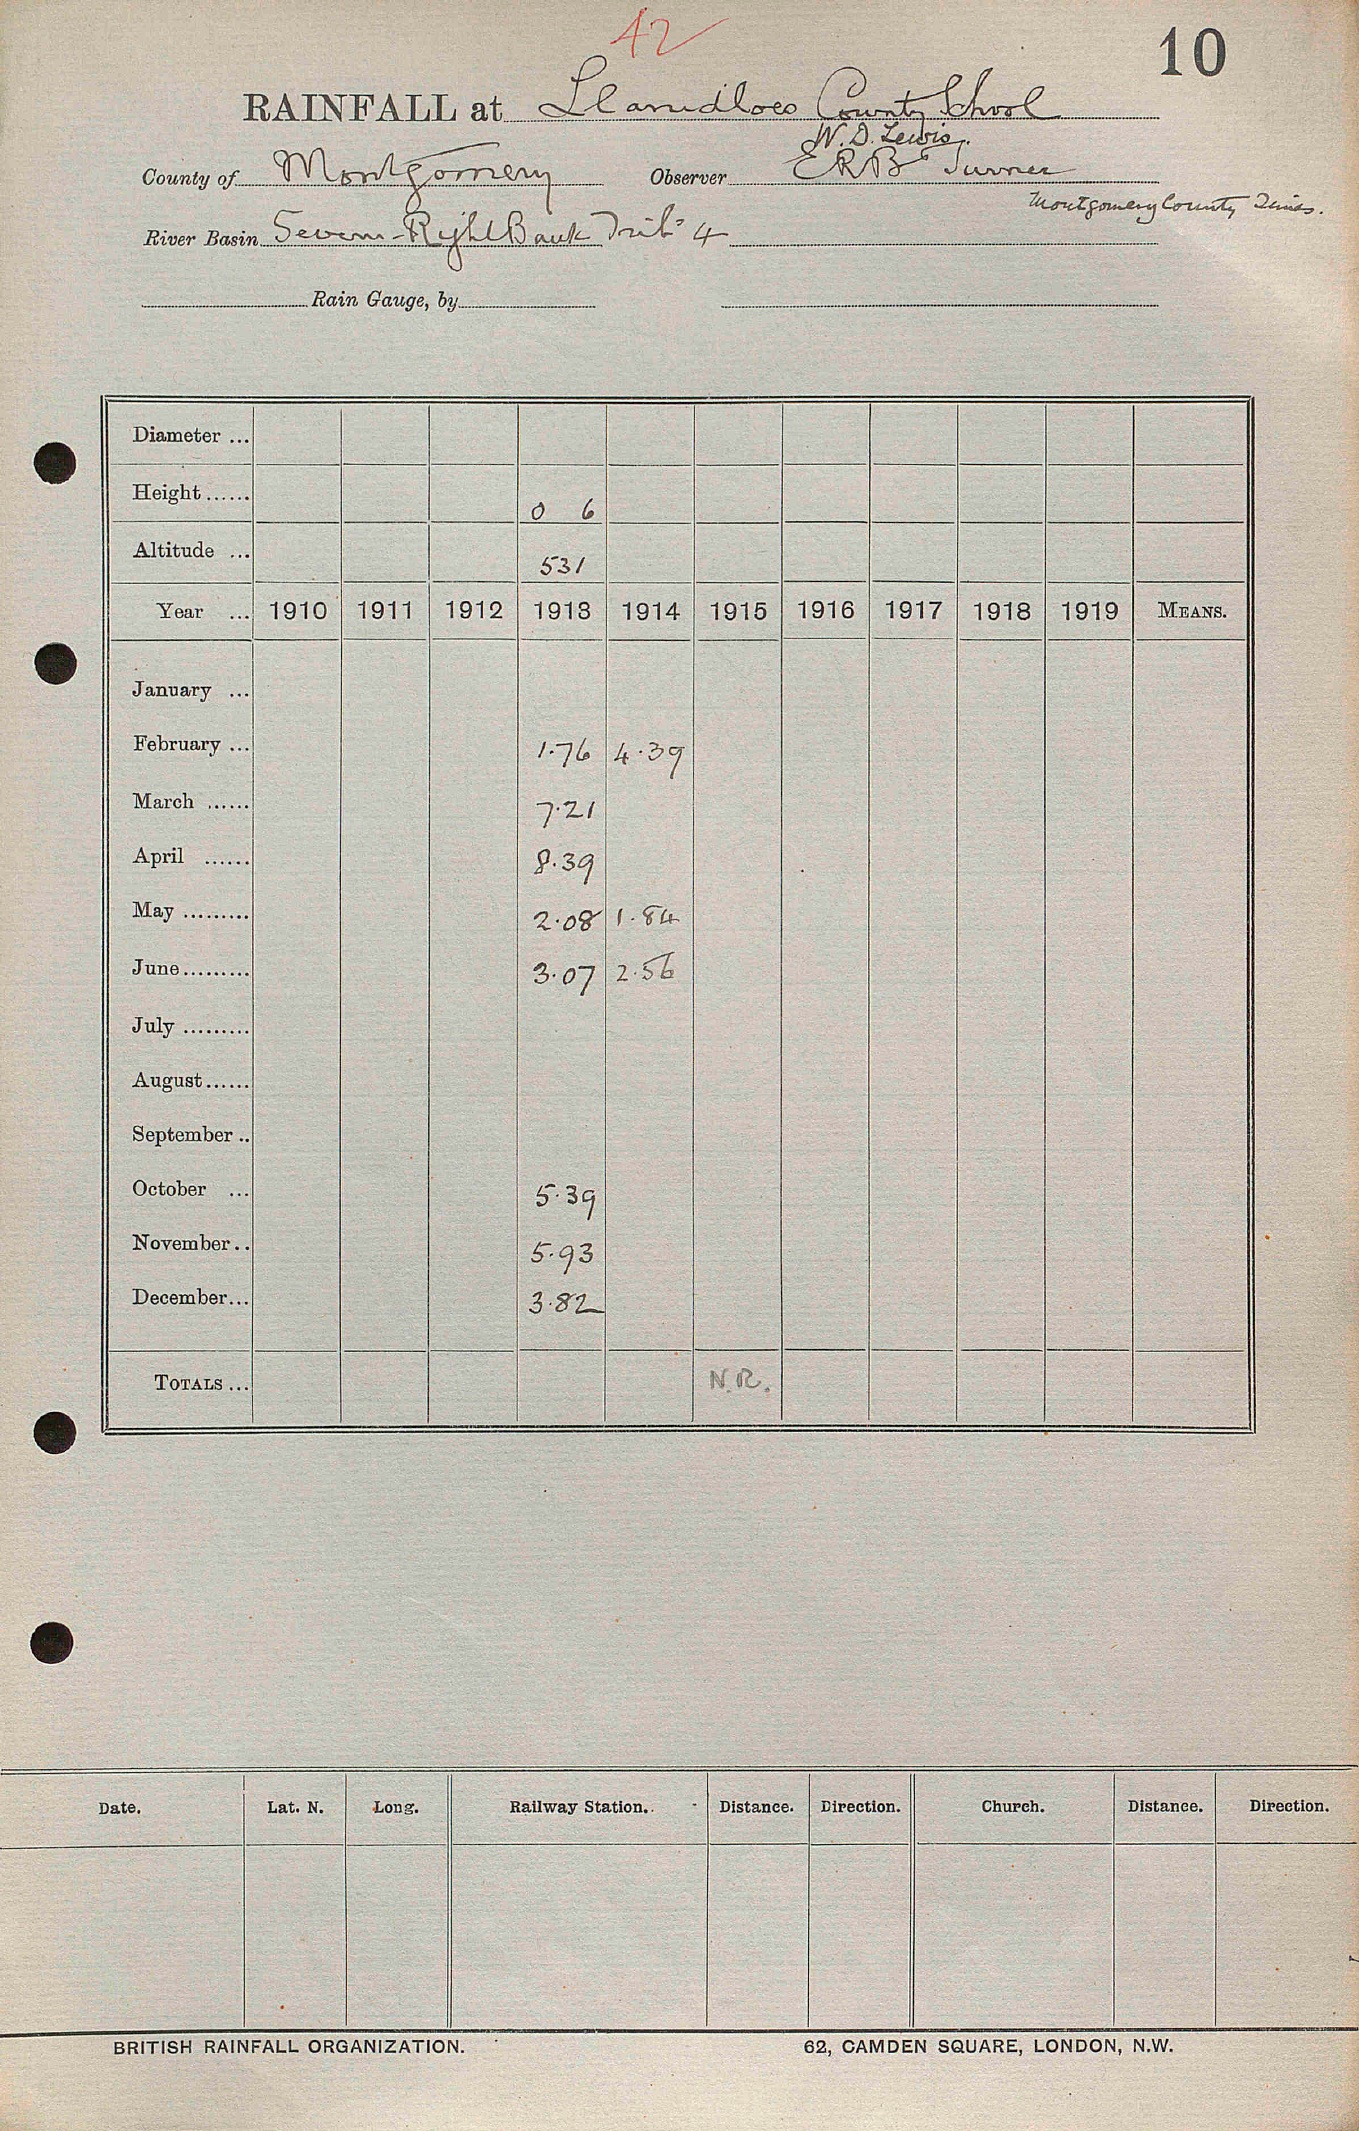 42
10
RAINFALL at Llanidloes County School
W. D. Lewis.
County of Montgomery Observer E R B Turner
Montgomery County Times.
River Basin Severn - Right Bank Trib's 4
Rain Gauge, by
Diameter ...
Height ...... 0 6
Altitude ... 531
Year ... 1910 1911 1912 1913 1914 1915 1916 1917 1918 1919 MEANS.
January ...
February ... 1.76 4.39
March ...... 7.21
April ...... 8.39
May ......... 2.08 1.84
June ......... 3.07 2.56
July .........
August ......
September ..
October ... 5.39
November .. 5.93
December ... 3.82
TOTALS ... N.R.
Date. Lat. N. Long. Railway Station. Distance. Direction. Church. Distance. Direction.
BRITISH RAINFALL ORGANIZATION. 62, CAMDEN SQUARE, LONDON, N.W.